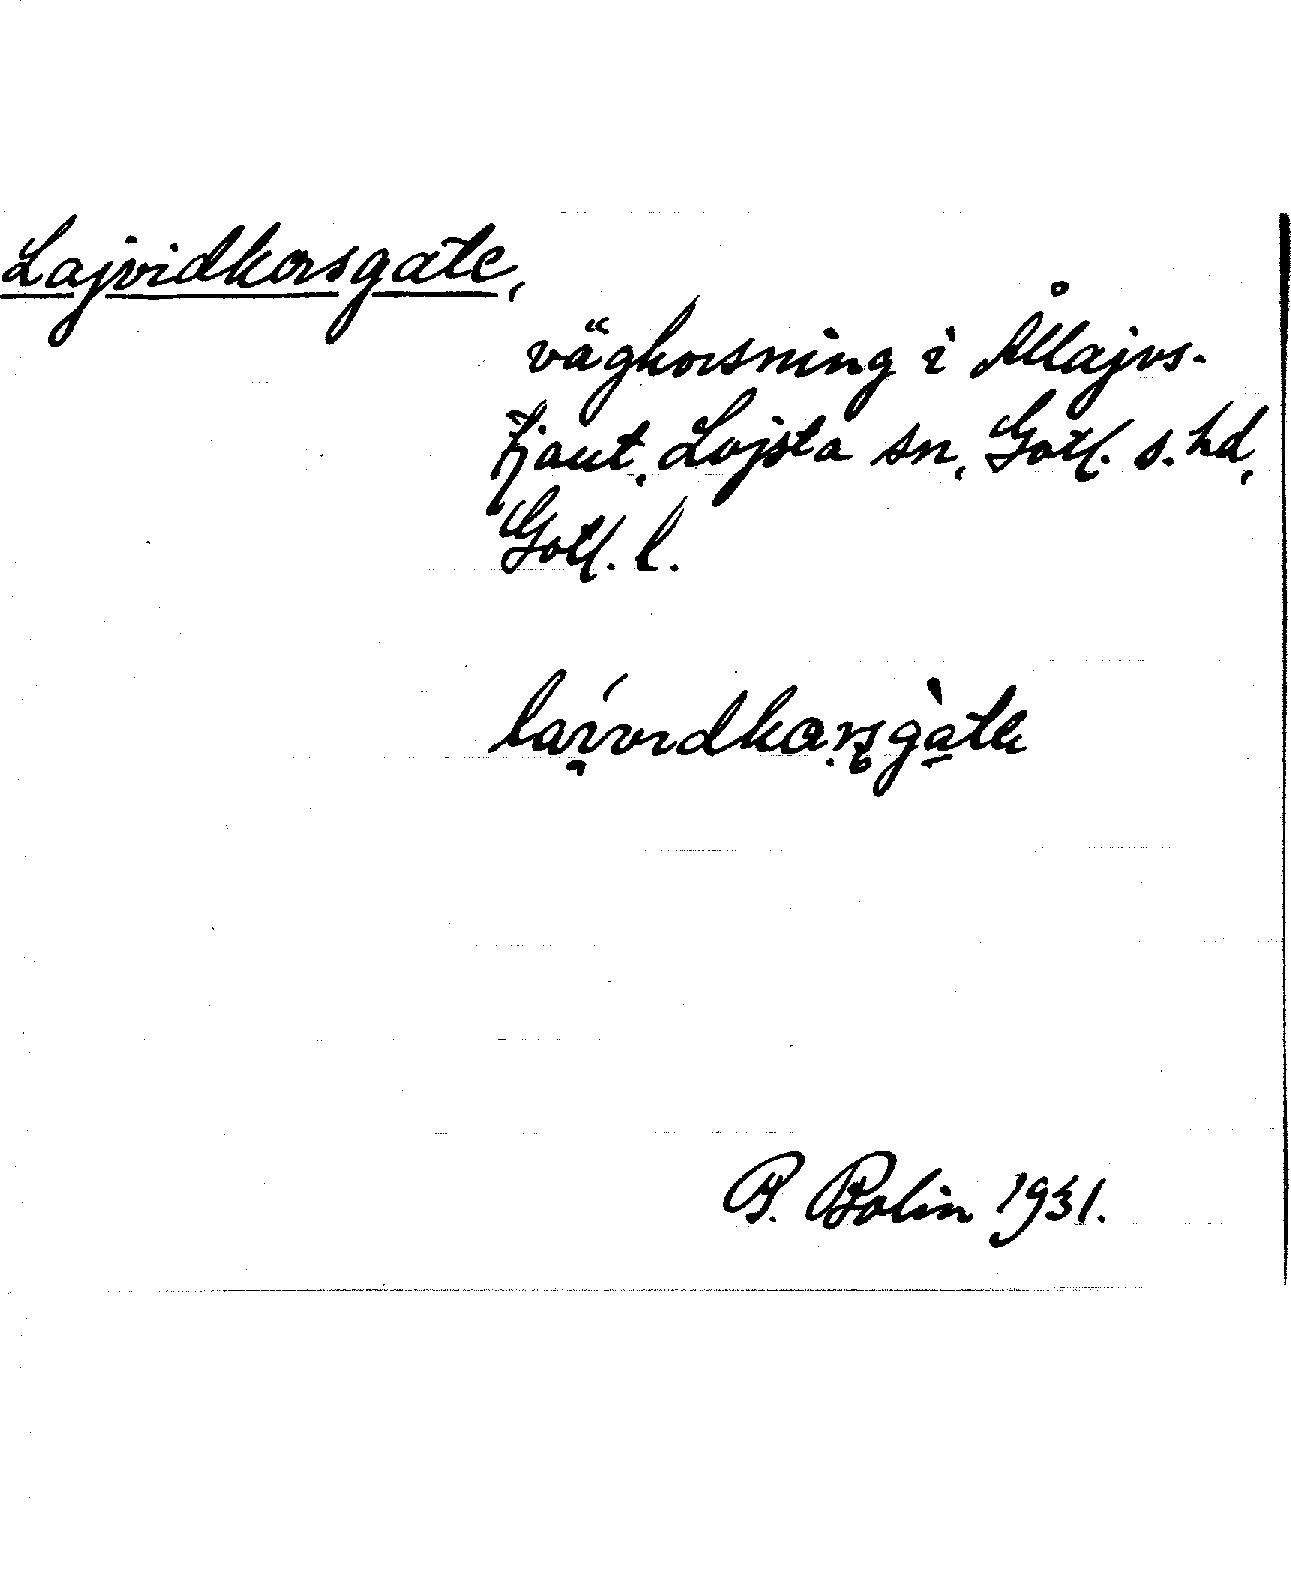 Lajvidkorsgate,
vägkorsning i Ållajvs-
kjaut, Lojsta sn, Gotl. s. hd,
Gotl. l.
lai̯vıdkɷrsgàtɛ
B. Bolin 1931.